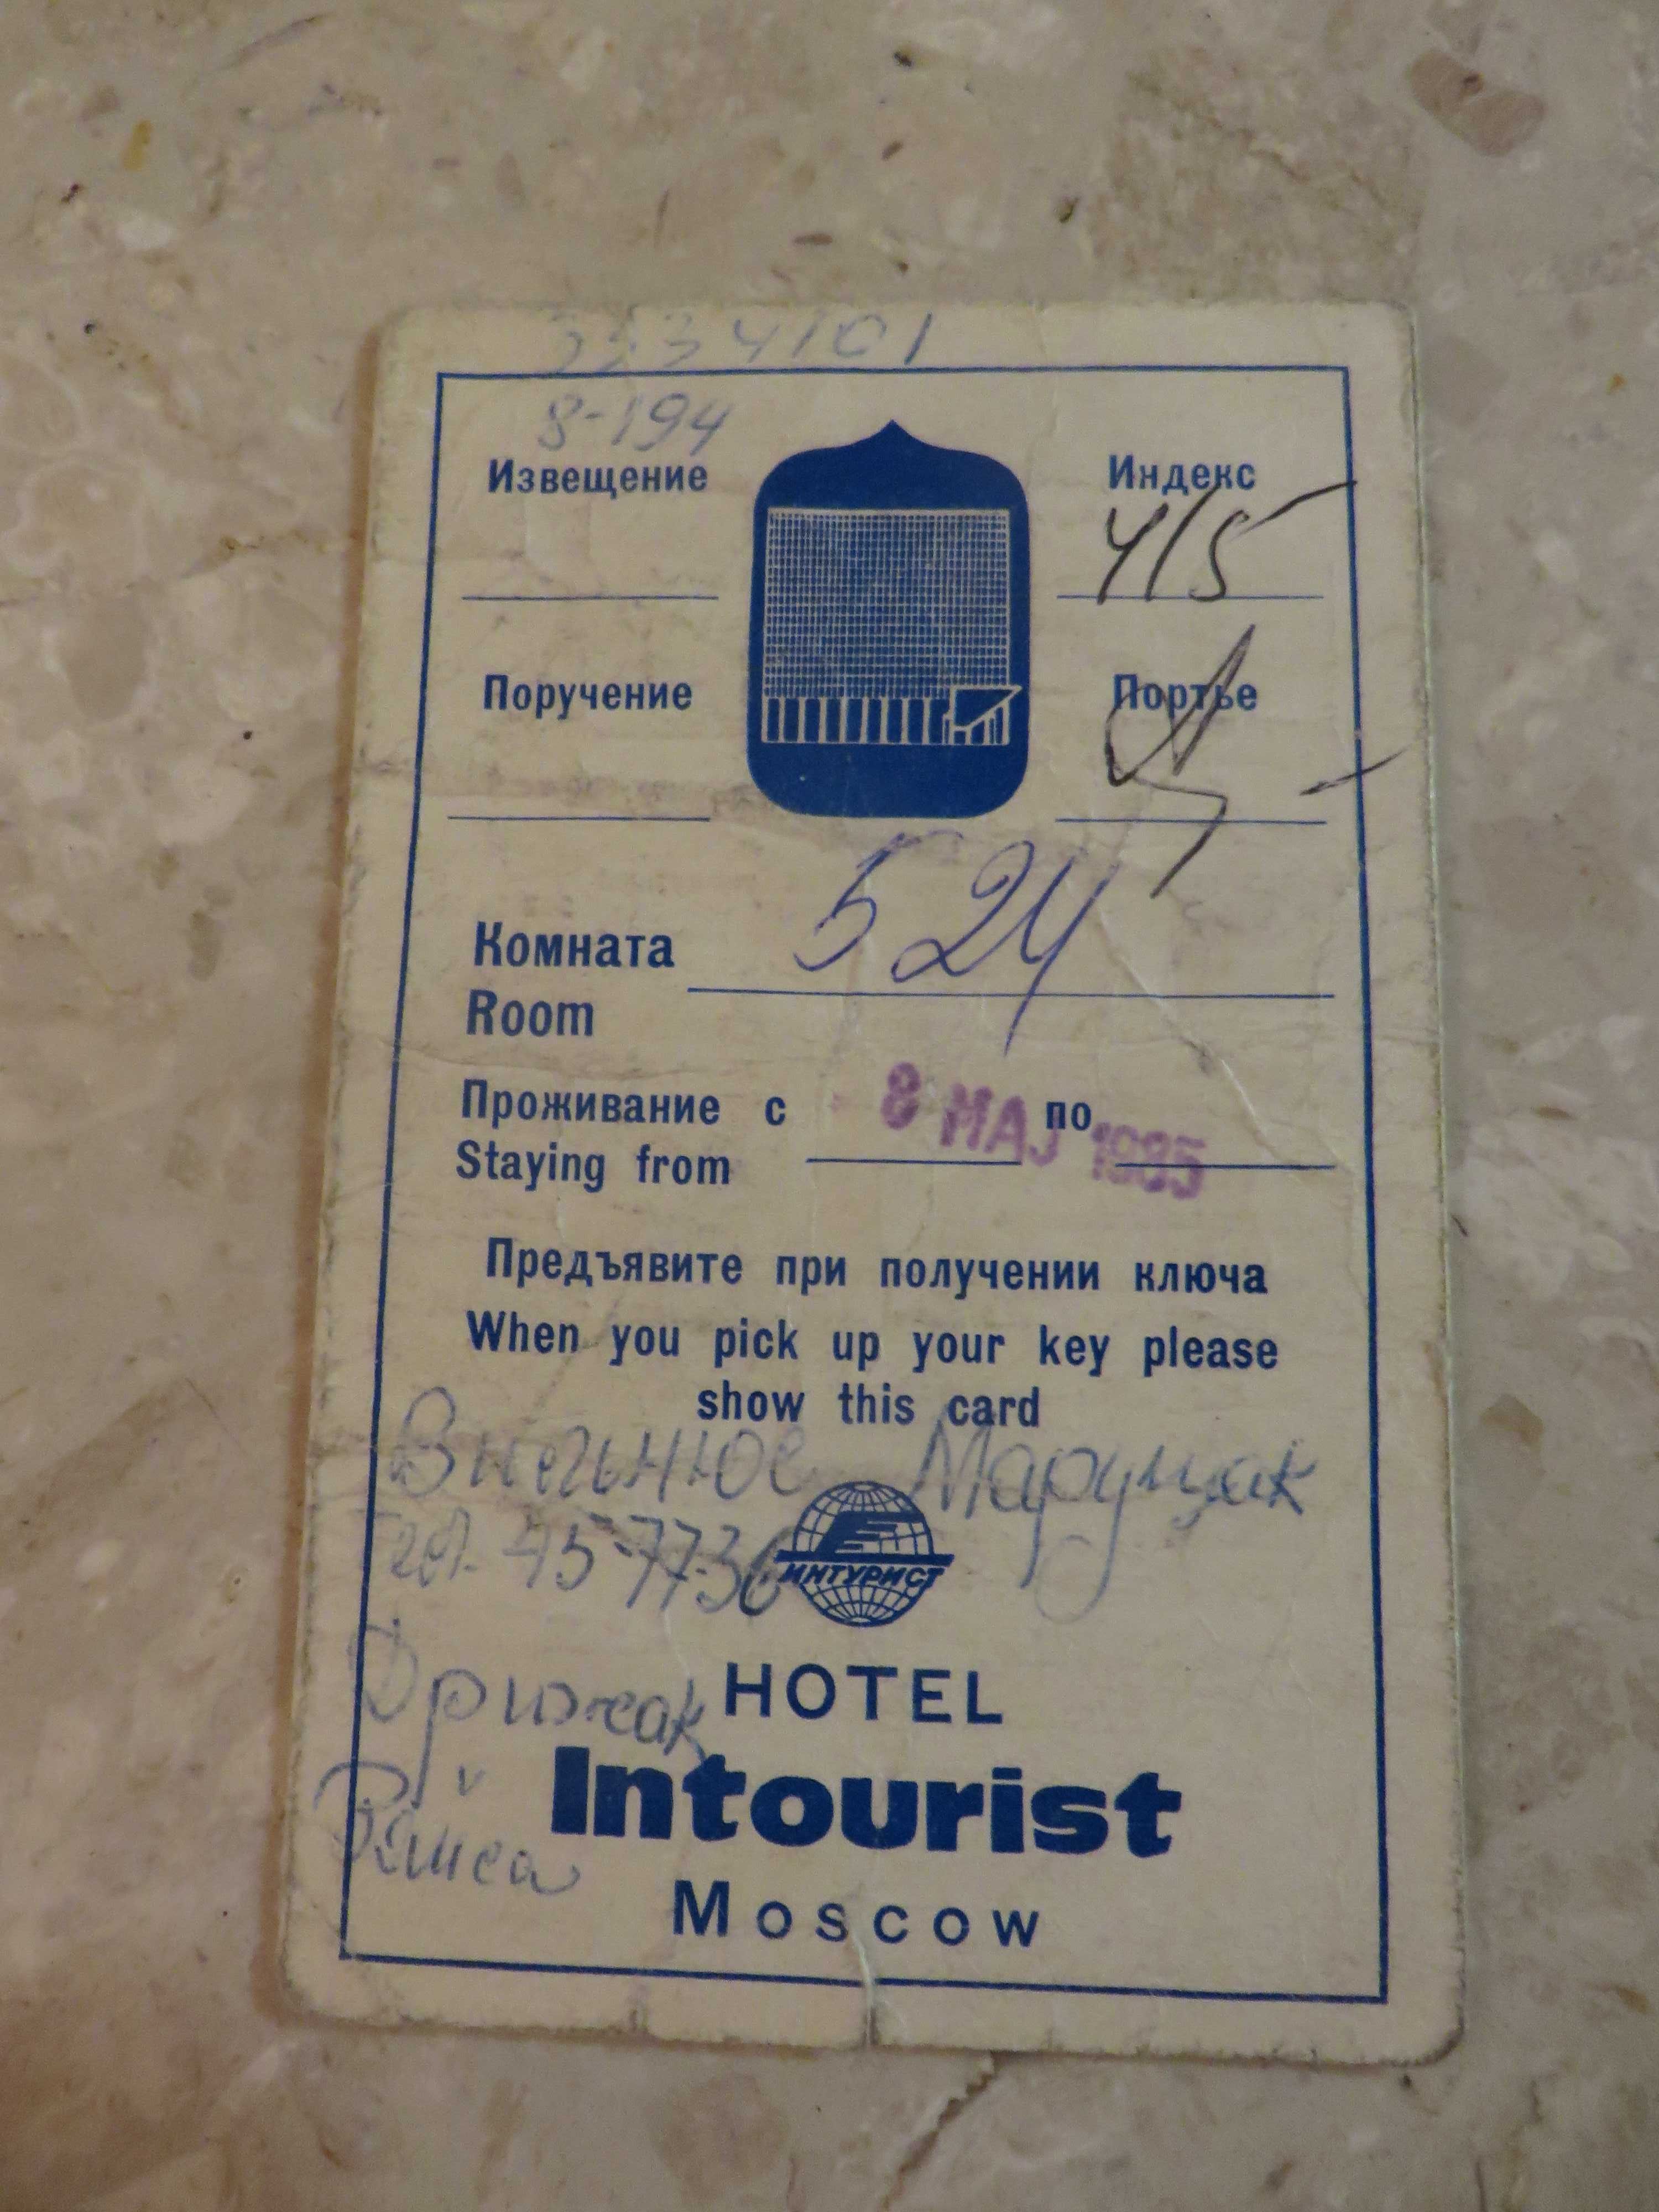 34101
8-194
Извещение
Индекс
415
Поручение
Портье
Комната 524
Room
Проживание с 8 МАЙ по 1985
Staying from
Предъявите при получении ключа
When you pick up your key please
show this card
Марущак
тел. 45-77-36
ИНТУРИСТ
HOTEL
Intourist
Moscow